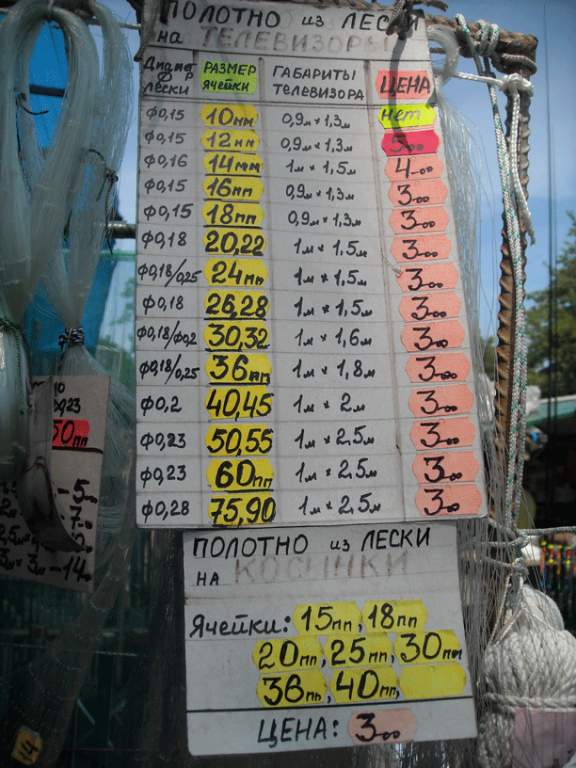 ПОЛОТНО из ЛЕСКИ
на ТЕЛЕВИЗОРЫ
Диаметр лески РАЗМЕР ячейки ГАБАРИТЫ ТЕЛЕВИЗОРА ЦЕНА
ф0,15 10мм 0,9м × 1,3м нет
ф0,15 12мм 0,9м × 1,3м 5-00
ф0,16 14мм 1м × 1,5м 4-00
ф0,15 16мм 0,9м × 1,3м 3-00
ф0,15 18мм 0,9м × 1,3м 3-00
ф0,18 20,22 1м × 1,5м 3-00
ф0,18/0,25 24мм 1м × 1,5м 3-00
ф0,18 26,28 1м × 1,5м 3-00
ф0,18/ф0,2 30,32 1м × 1,6м 3-00
ф0,18/0,25 36мм 1м × 1,8м 3-00
ф0,2 40,45 1м × 2м 3-00
ф0,23 50,55 1м × 2,5м 3-00
ф0,23 60мм 1м × 2,5м 3-00
ф0,28 75,90 1м × 2,5м 3-00
ПОЛОТНО из ЛЕСКИ
на КОСЫНКИ
Ячейки: 15мм, 18мм
20мм, 25мм, 30мм
36мм, 40мм,
ЦЕНА: 3-00
50мм
3м × 3м - 14-00
14